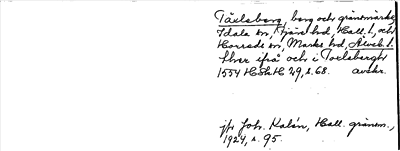 Täxlaberg, berg och gränsmärke,
Idala sn, Fjäre hd, Hall. l., och
Horreds sn, Marks hd, Älvsb. l.
ifrå och i Toxlabergh
1554 HSH 29, s. 68. avskr.
jfr Joh. Kalén, Hall. gränsm.,
1924, s. 95.